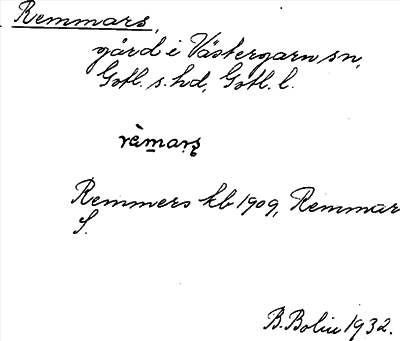 Remmars,
gård i Västergarn sn,
Gotl. s. hd, Gotl. l.
rèmaʂ
Remmers kb 1909, Remmar
S.
B. Bolin 1932.